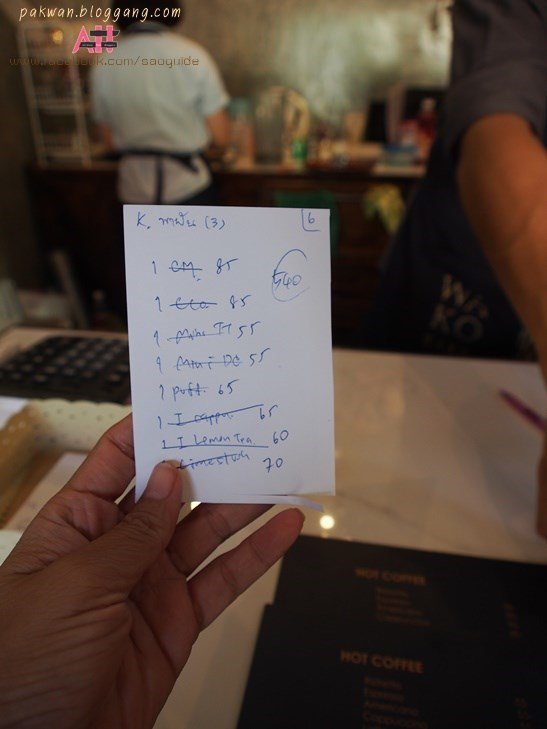 pakwan.bloggang.com
www.facebook.com/saoguide
K. พาฝัน (3)
6
540
1 CM. 85
1 Cco 85
1 Mini TT 55
1 Mini DC 55
1 puff. 65
1 I cappu. 65
1 I Lemon Tea. 60
70
HOT COFFEE
HOT COFFEE
Ristretto
Espresso
Americano
Cappuccino